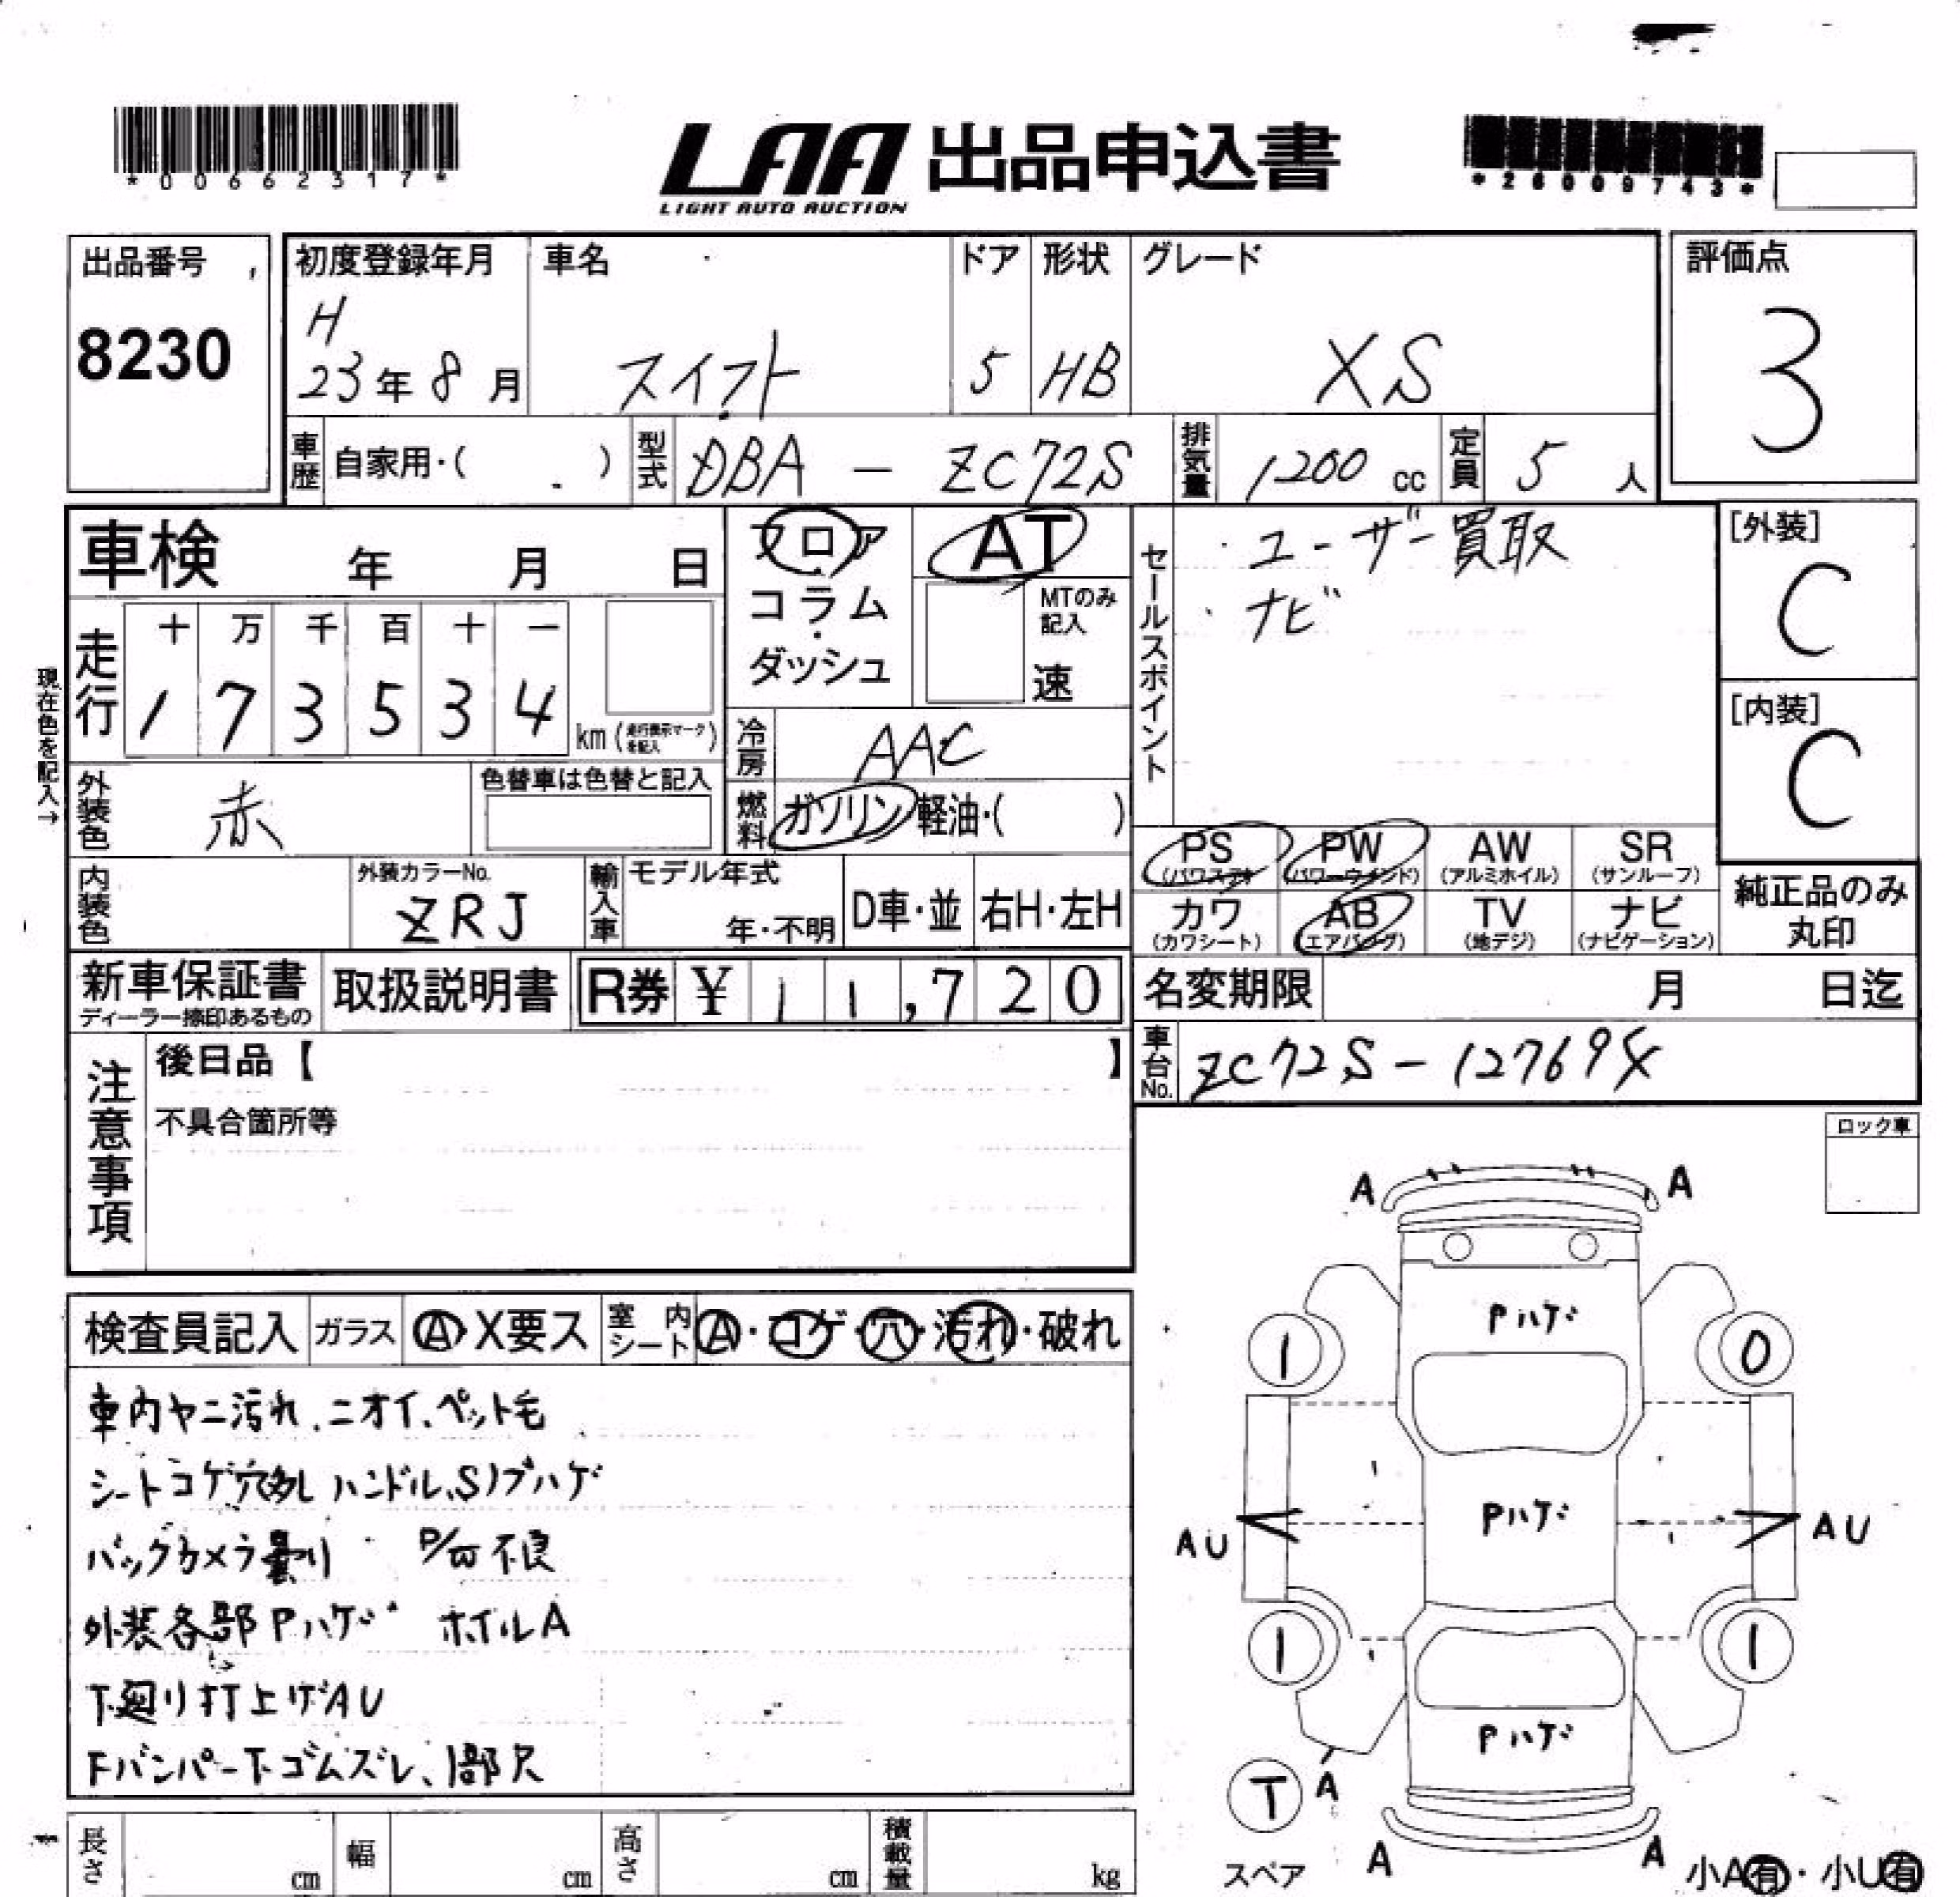 *00662317*
LAA 出品申込書
LIGHT AUTO AUCTION
*26009743*
出品番号
8230
初度登録年月
H
23年 8月
車名
スイフト
ドア
5
形状
HB
グレード
XS
評価点
3
車歴 自家用・( )
型式 DBA - ZC72S
排気量 1200 cc
定員 5 人
車検 年 月 日
フロア
コラム
・
ダッシュ
AT
MTのみ
記入
速
セールスポイント
・ユーザー買取
・ナビ
[外装]
C
[内装]
C
現在色を記入→
走行
十 万 千 百 十 一
1 7 3 5 3 4
km (走行表示マークを記入)
冷房 AAC
燃料 ガソリン・軽油・( )
外装色 赤
色替車は色替と記入
PS
(パワステ)
PW
(パワーウインド)
AW
(アルミホイル)
SR
(サンルーフ)
カワ
(カワシート)
AB
(エアバッグ)
TV
(地デジ)
ナビ
(ナビゲーション)
純正品のみ
丸印
内装色
外装カラーNo.
ZRJ
輸入車
モデル年式
年・不明
D車・並
右H・左H
新車保証書
ディーラー捺印あるもの
取扱説明書
R券 ¥ 11,720
名変期限 月 日迄
車台No. ZC72S-127694
注意事項
後日品【 】
不具合箇所等
ロック車
検査員記入 ガラス A・X要ス 室内シート A・コゲ・穴・汚れ・破れ
車内ヤニ汚れ、ニオイ、ペット毛
シートコゲ穴多し ハンドル、Sノブハゲ
バックカメラ曇り P/W不良
外装各部Pハゲ ホイルA
下廻り打上げAU
Fバンパー下ゴムズレ、1部欠
A
A
Pハゲ
1
0
Pハゲ
AU
AU
1
1
Pハゲ
T
A
スペア
A
A
小A有・小U有
長さ cm
幅 cm
高さ cm
積載量 kg